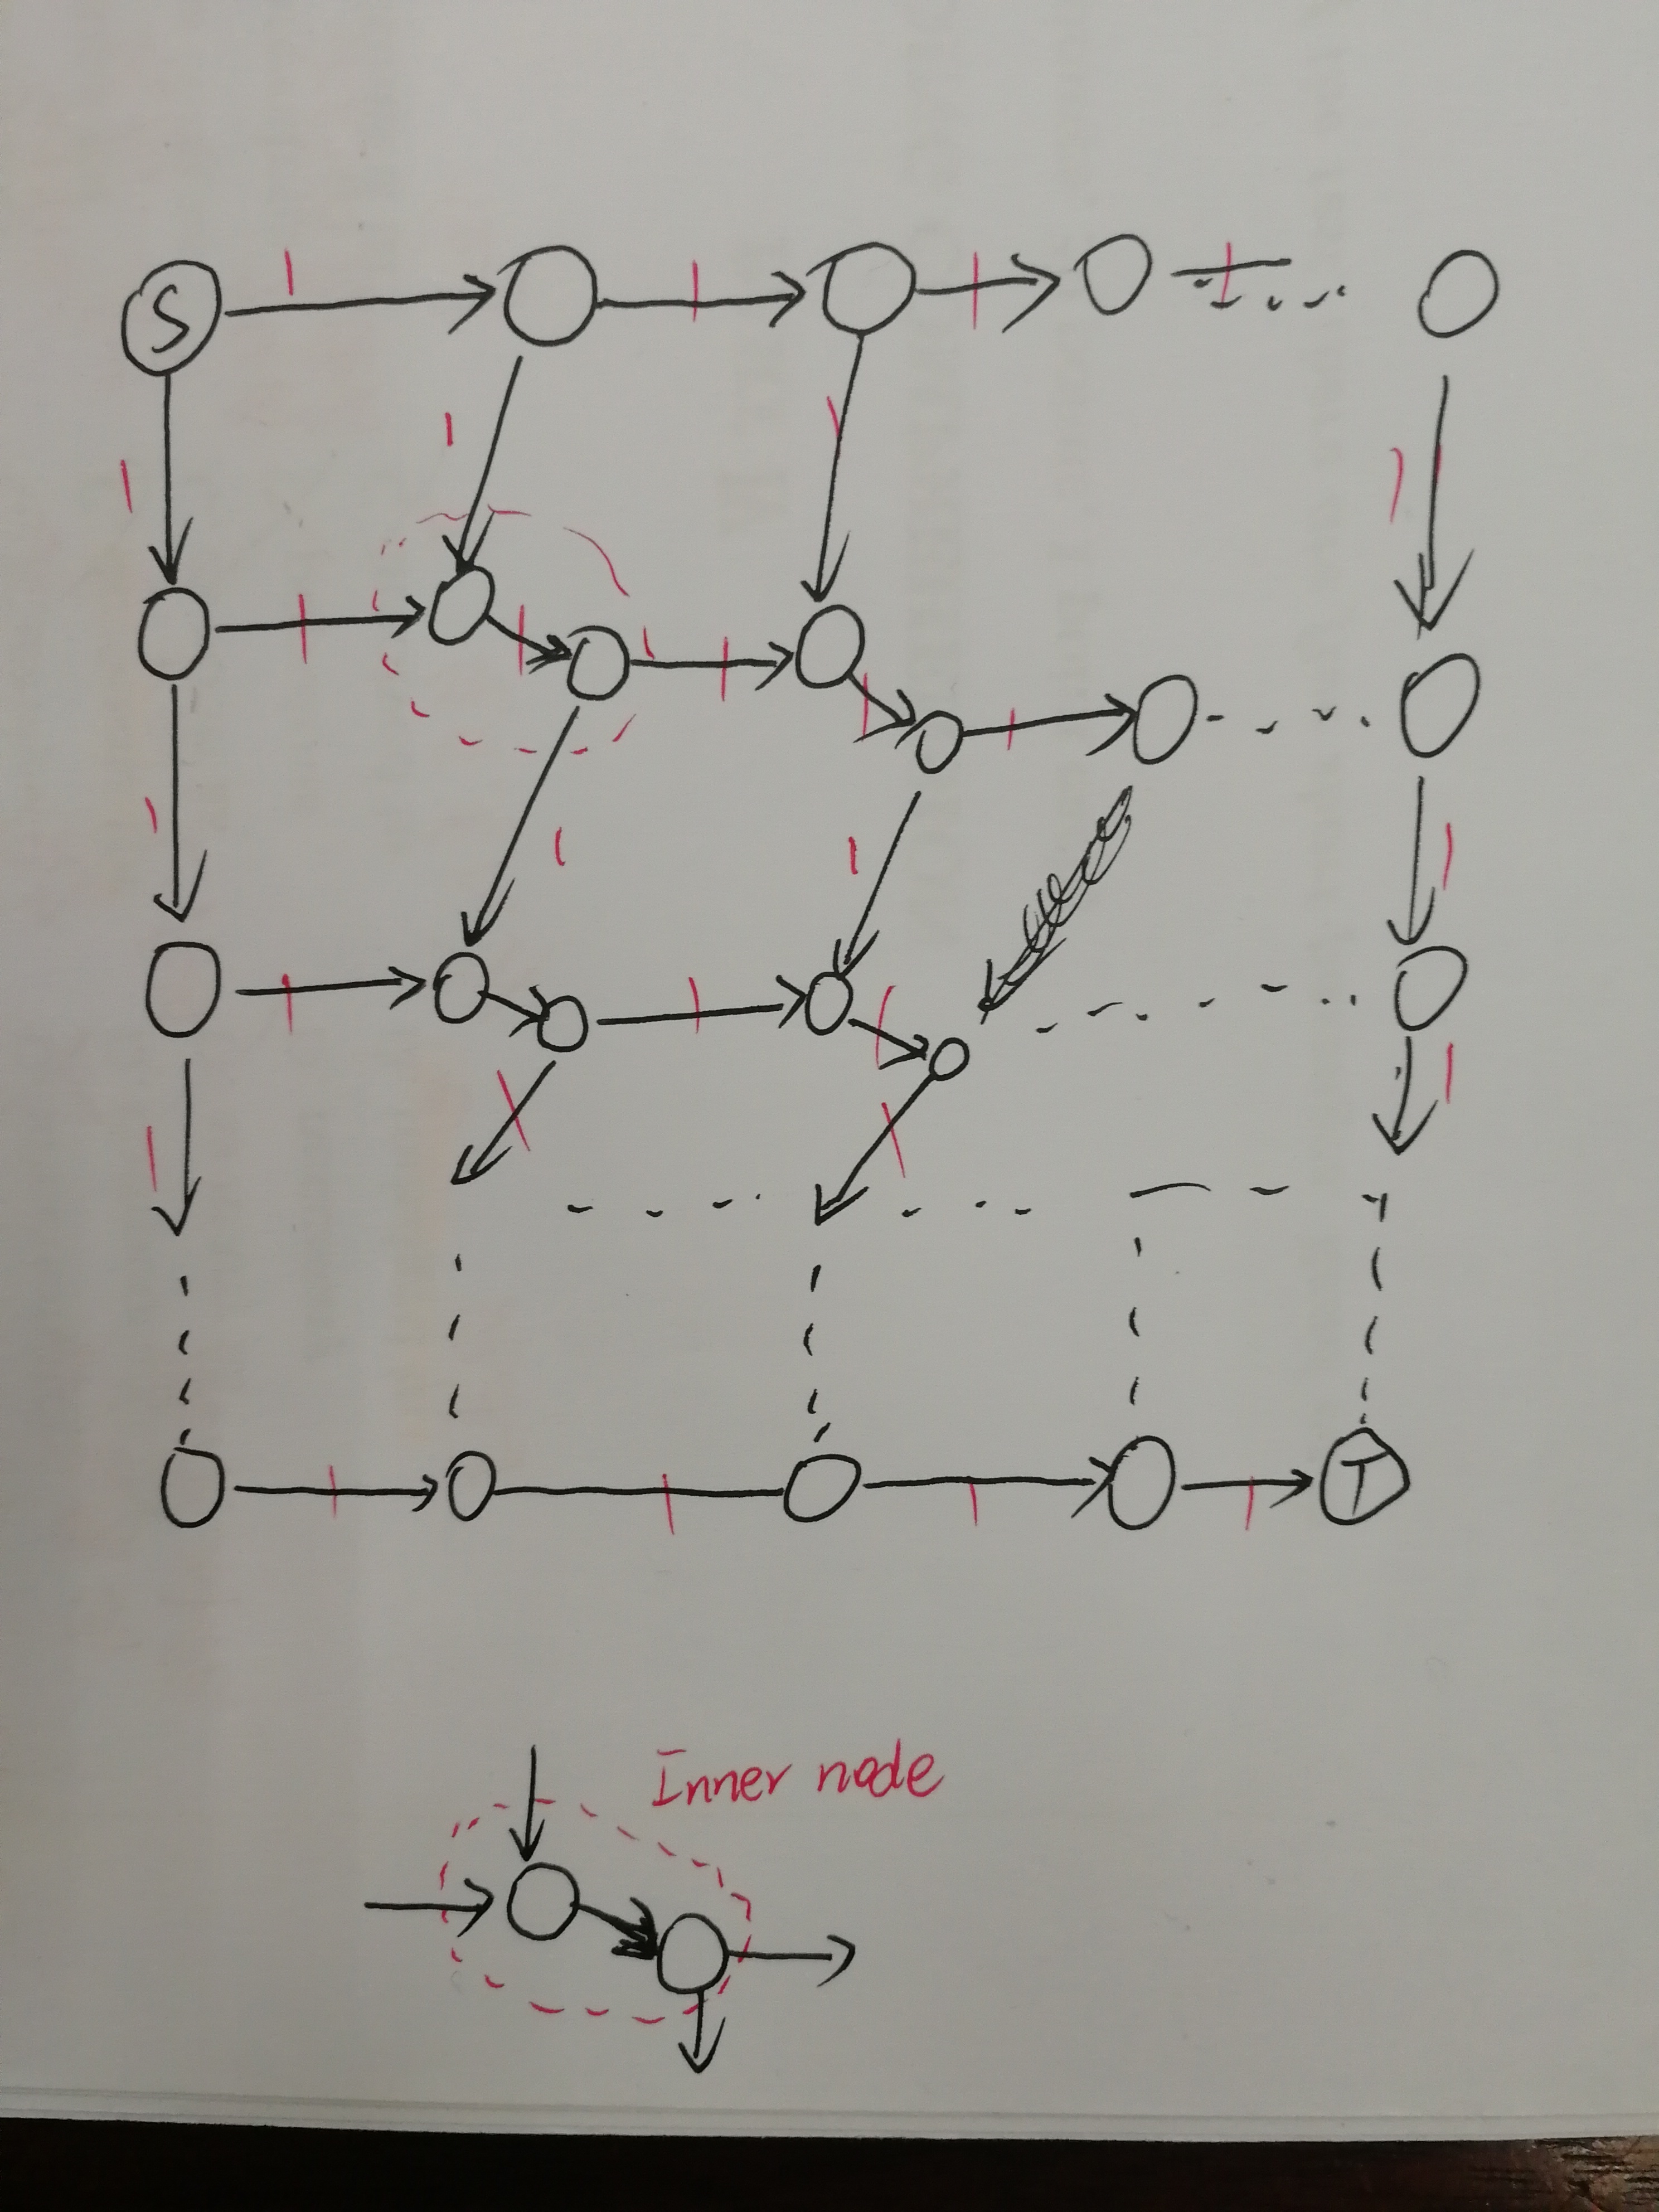 S
1 1 1 1
1 1 1 1
1 1 1 1 1
1 1 1 1
1 1 1
1 1 1 1
1 1 1 1
T
Inner node